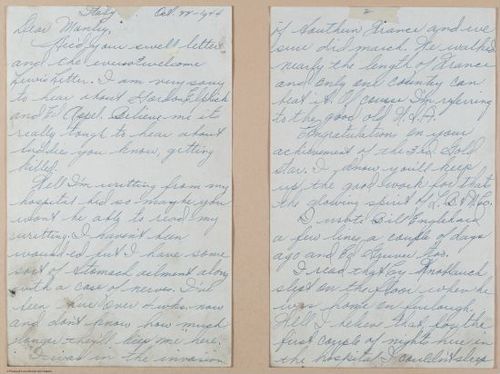 Italy Oct. 22-1944
Dear Manley,
Rec'd your swell letter
and the ever so welcome
newsletter. I am very sorry
to hear about Gordon
and Ed Appel. Believe me it's
really tough to hear about
buddies you know, getting
killed.
Well I'm writting from my
hospital bed so maybe you
wont be able to read my
writting. I haven't been
wounded but I have some
sort of stomach ailment along
with a case of nerves. I've
been here over 2 wks. now
and don't know how much
longer they'll keep me here.
I was in the invasion
2
of Southern France and we
sure did march. We walked
nearly the length of France
and only one country can
beat it. Of course I'm referring
to the good old U.S.A.
Congratulations on your
achievement of the Gold
Star. I know you'll keep
up the good work for that
the glowing spirit
I wrote Bill Englehard
a few lines a couple of days
ago and Ed
I read that Ray Knoblauch
slept on the floor when he
was home on furlough.
Well I believe that, for the
first couple of nights here in
the hospital I couldn't sleep